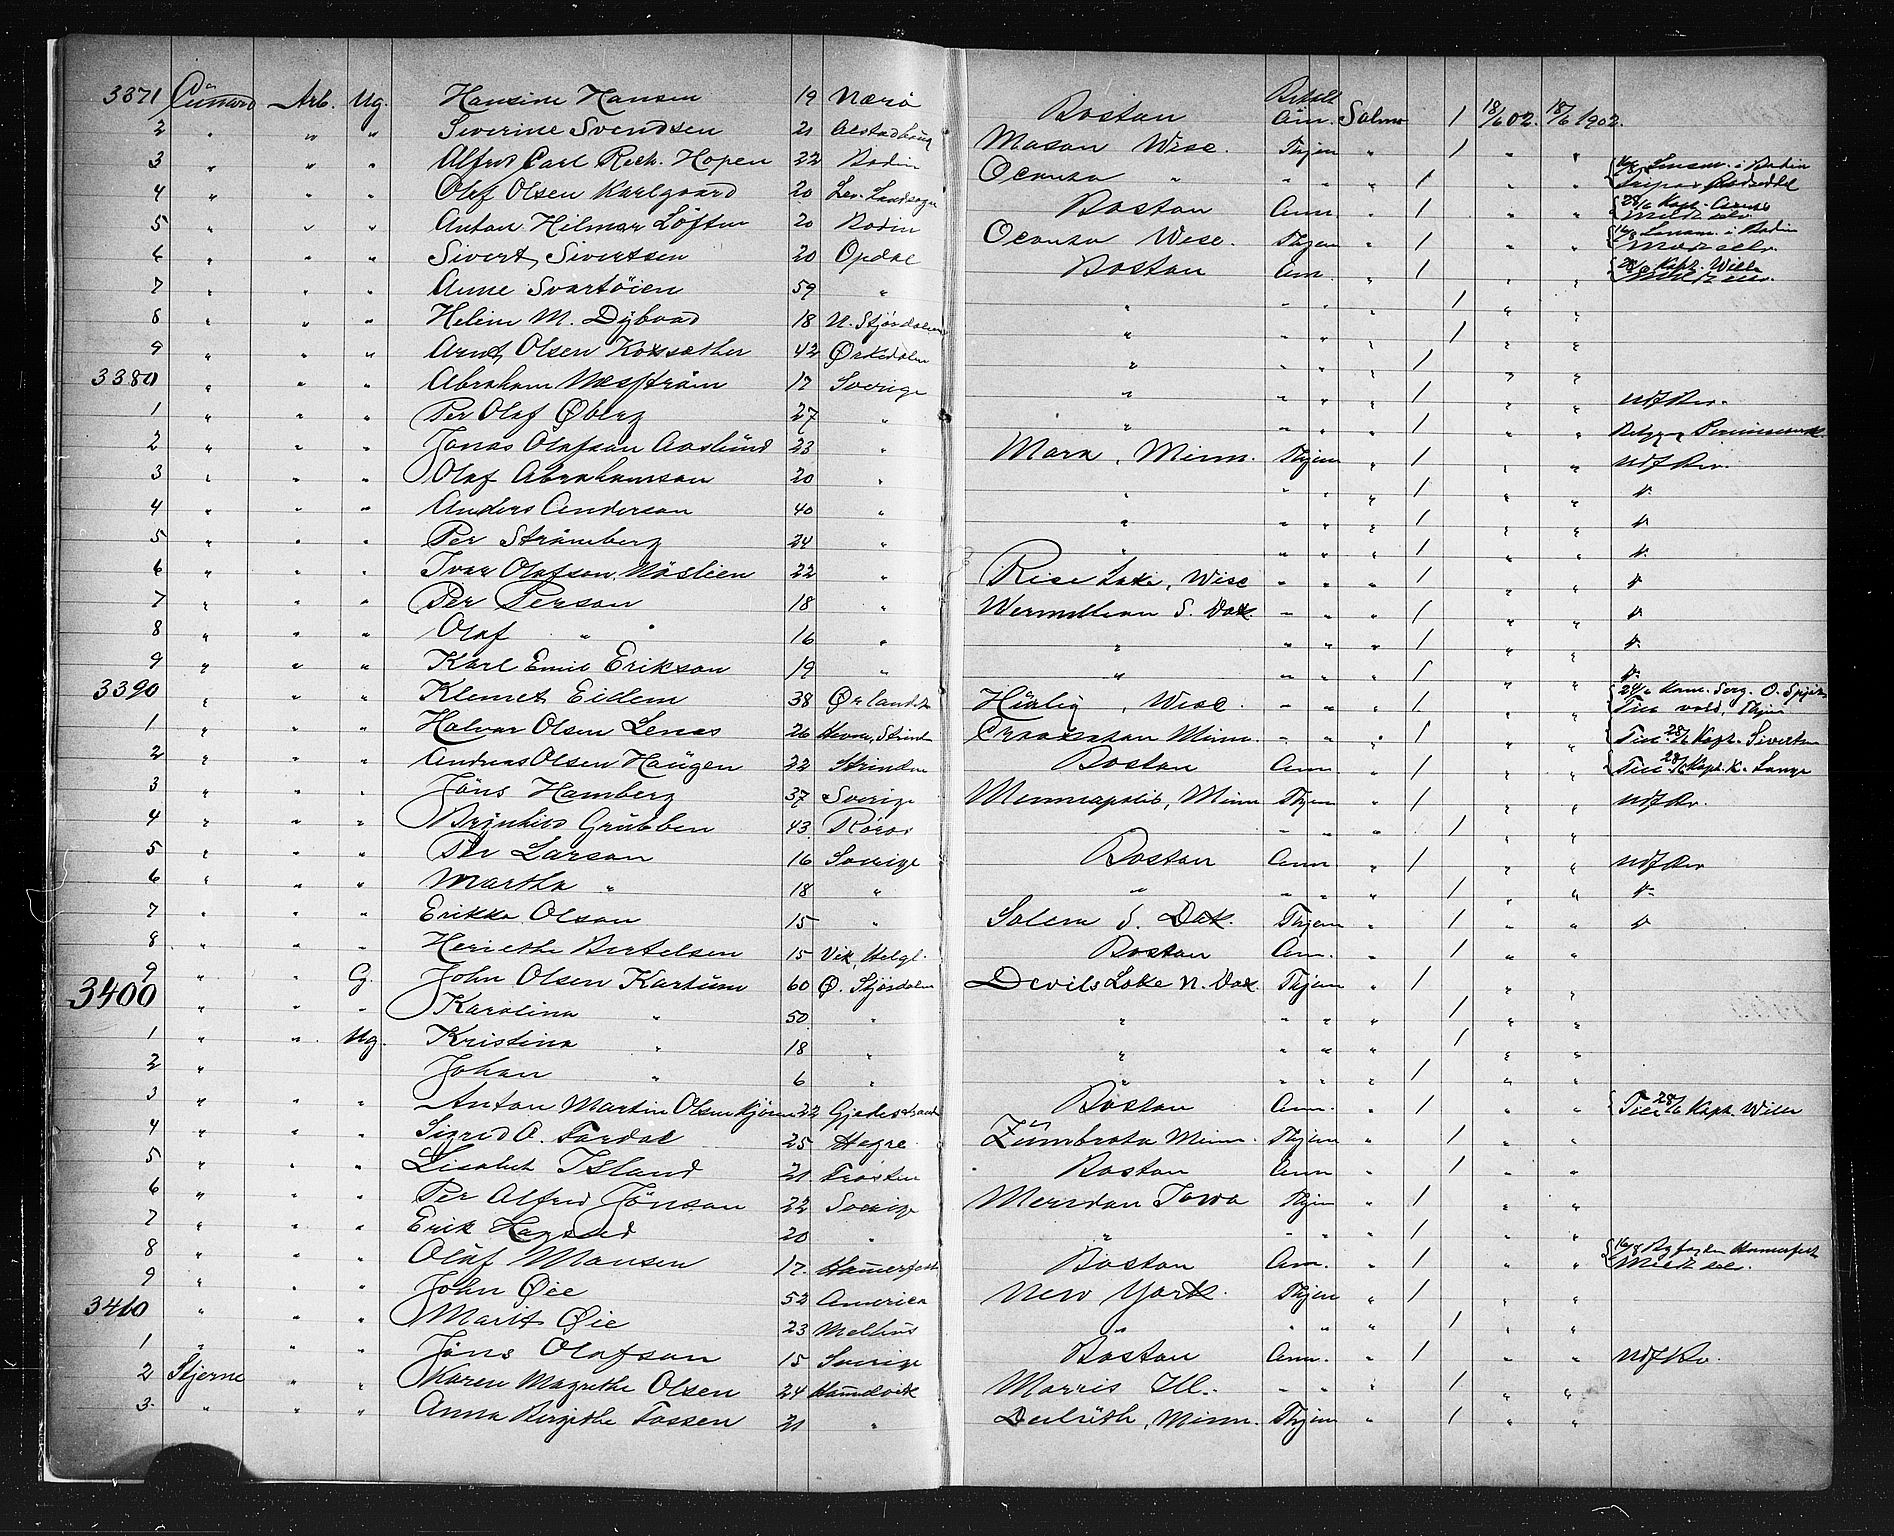 3371 Cunard Arb. Ug. Hansine Hansen 19 Nærö Boston Am. Salmo 1 18/6 02. 18/6 1902.
2 " " " Severine Svendsen 21 Alstadhaug Mason Wisc. Thjem " 1 " "
3 " " " Alfred Carl Rech. Hopen 22 Bodin Oconto " " " " 1 " "
4 " " " Olaf Olsen Karlgaard 20 Lev. Landsogn Boston Am. " 1 " " 28/6 Kapt.
5 " " " Anton Hilmar Löften 20 Bodin Oconto Wisc. Thjem " 1 " " 16/8 Lensm. i Bodin
6 " " " Sivert Sivertsen 20 Opdal Boston Am. " 1 " " 28/6 Kapt. Wille
7 " " " Anne Svartöien 59 " " " " " 1 " "
8 " " " Heline M. Dybvad 18 N. Stjördalen " " " " 1 " "
9 " " " Arnt Olsen Koxsæther 42 Ørkedalen " " " " 1 " "
3380 " " " Abraham Næsström 17 Sverige " " " " 1 " " udf Rv.
1 " " " Per Olof Øberg 27 " " " " " 1 " "
2 " " " Jonas Olofson Aaslund 23 " Mora, Minn. Thjem " 1 " " udf Rv.
3 " " " Olof Abrahamson 20 " " " " " 1 " " "
4 " " " Anders Anderson 40 " " " " " 1 " " "
5 " " " Per Strömberg 24 " " " " " 1 " " "
6 " " " Ivar Olofson Näslien 22 " Rice Lake, Wisc " " " 1 " " "
7 " " " Per Person 18 " Wermillion S. Dak. " " " 1 " " "
8 " " " Olof " 16 " " " " " 1 " " "
9 " " " Karl Emil Erikson 19 " " " " " 1 " " "
3390 " " " Klemet Eidem 38 Ørlandet Hurley, Wisc. " " " 1 " " 24/6
1 " " " Halvor Olsen Lenes 26 Hevne, Strinda Crookston Minn. " " " 1 " " Till. 28/6 Kapt. Sivertsen
2 " " " Andreas Olsen Haugen 22 Strinden Boston Am. " 1 " " Till 28/6 Kapt. K. Lange
3 " " " Jöns Hamberg 37 Sverige Minneapolis, Minn Thjem " 1 " " udf Rv.
4 " " " Brynhild Grubben 43 Röros " " " 1 " "
5 " " " Per Larson 16 Sverige Boston Am " 1 " " udf Rv
6 " " " Martha " 18 " " " " " 1 " " "
7 " " " Erikka Olson 15 " Salem S. Dak. Thjem " 1 " " "
8 " " " Heriette Bertelsen 15 Vik, Helgl. Boston Am. " 1 " "
9 " " G. John Olsen Kartum 60 Ø. Stjördalen Devils Lake N. Dak. Thjem " 1 " "
3400 " " " Karolina " 50 " " " " " 1 " "
1 " " Ug. Kristina " 18 " " " " " 1 " "
2 " Johan " 6 " " " " " 1 " "
3 " " " Anton Martin Olsen 22 Boston Am. " 1 " " Till 28/6 Kapt. Wille
4 " " " Sigrid O. Fordal 25 Hegre Zumbrota Minn. Thjem " 1 " "
5 " " " Lisabet Island 21 Frosten Boston Am " 1 " "
6 " " " Per Alfred Jönson 22 Sverige Meridan Iowa Thjem " 1 " "
7 " " " Erik 20 " " " " " 1 " "
8 " " " Olaf Monsen 17. Hamerfest Boston Am. " 1 " " 16/8 Hamerfest
9 " " " John Øie 52 America New York. Thjem " 1 " "
3410 " " " Marit Øie 23 Melhus " " " " 1 " "
1 " " " Jöns Olofson 15 Sverige Boston Am. " 1 " " udf Rv.
2 Stjerne " " Karen Magrethe Olsen 24 Hamdvik Morris Ill. " " " 1 " "
3. " " " Anna Birgithe Tossen 21 " Deluth, Minn. Thjem " 1 " "